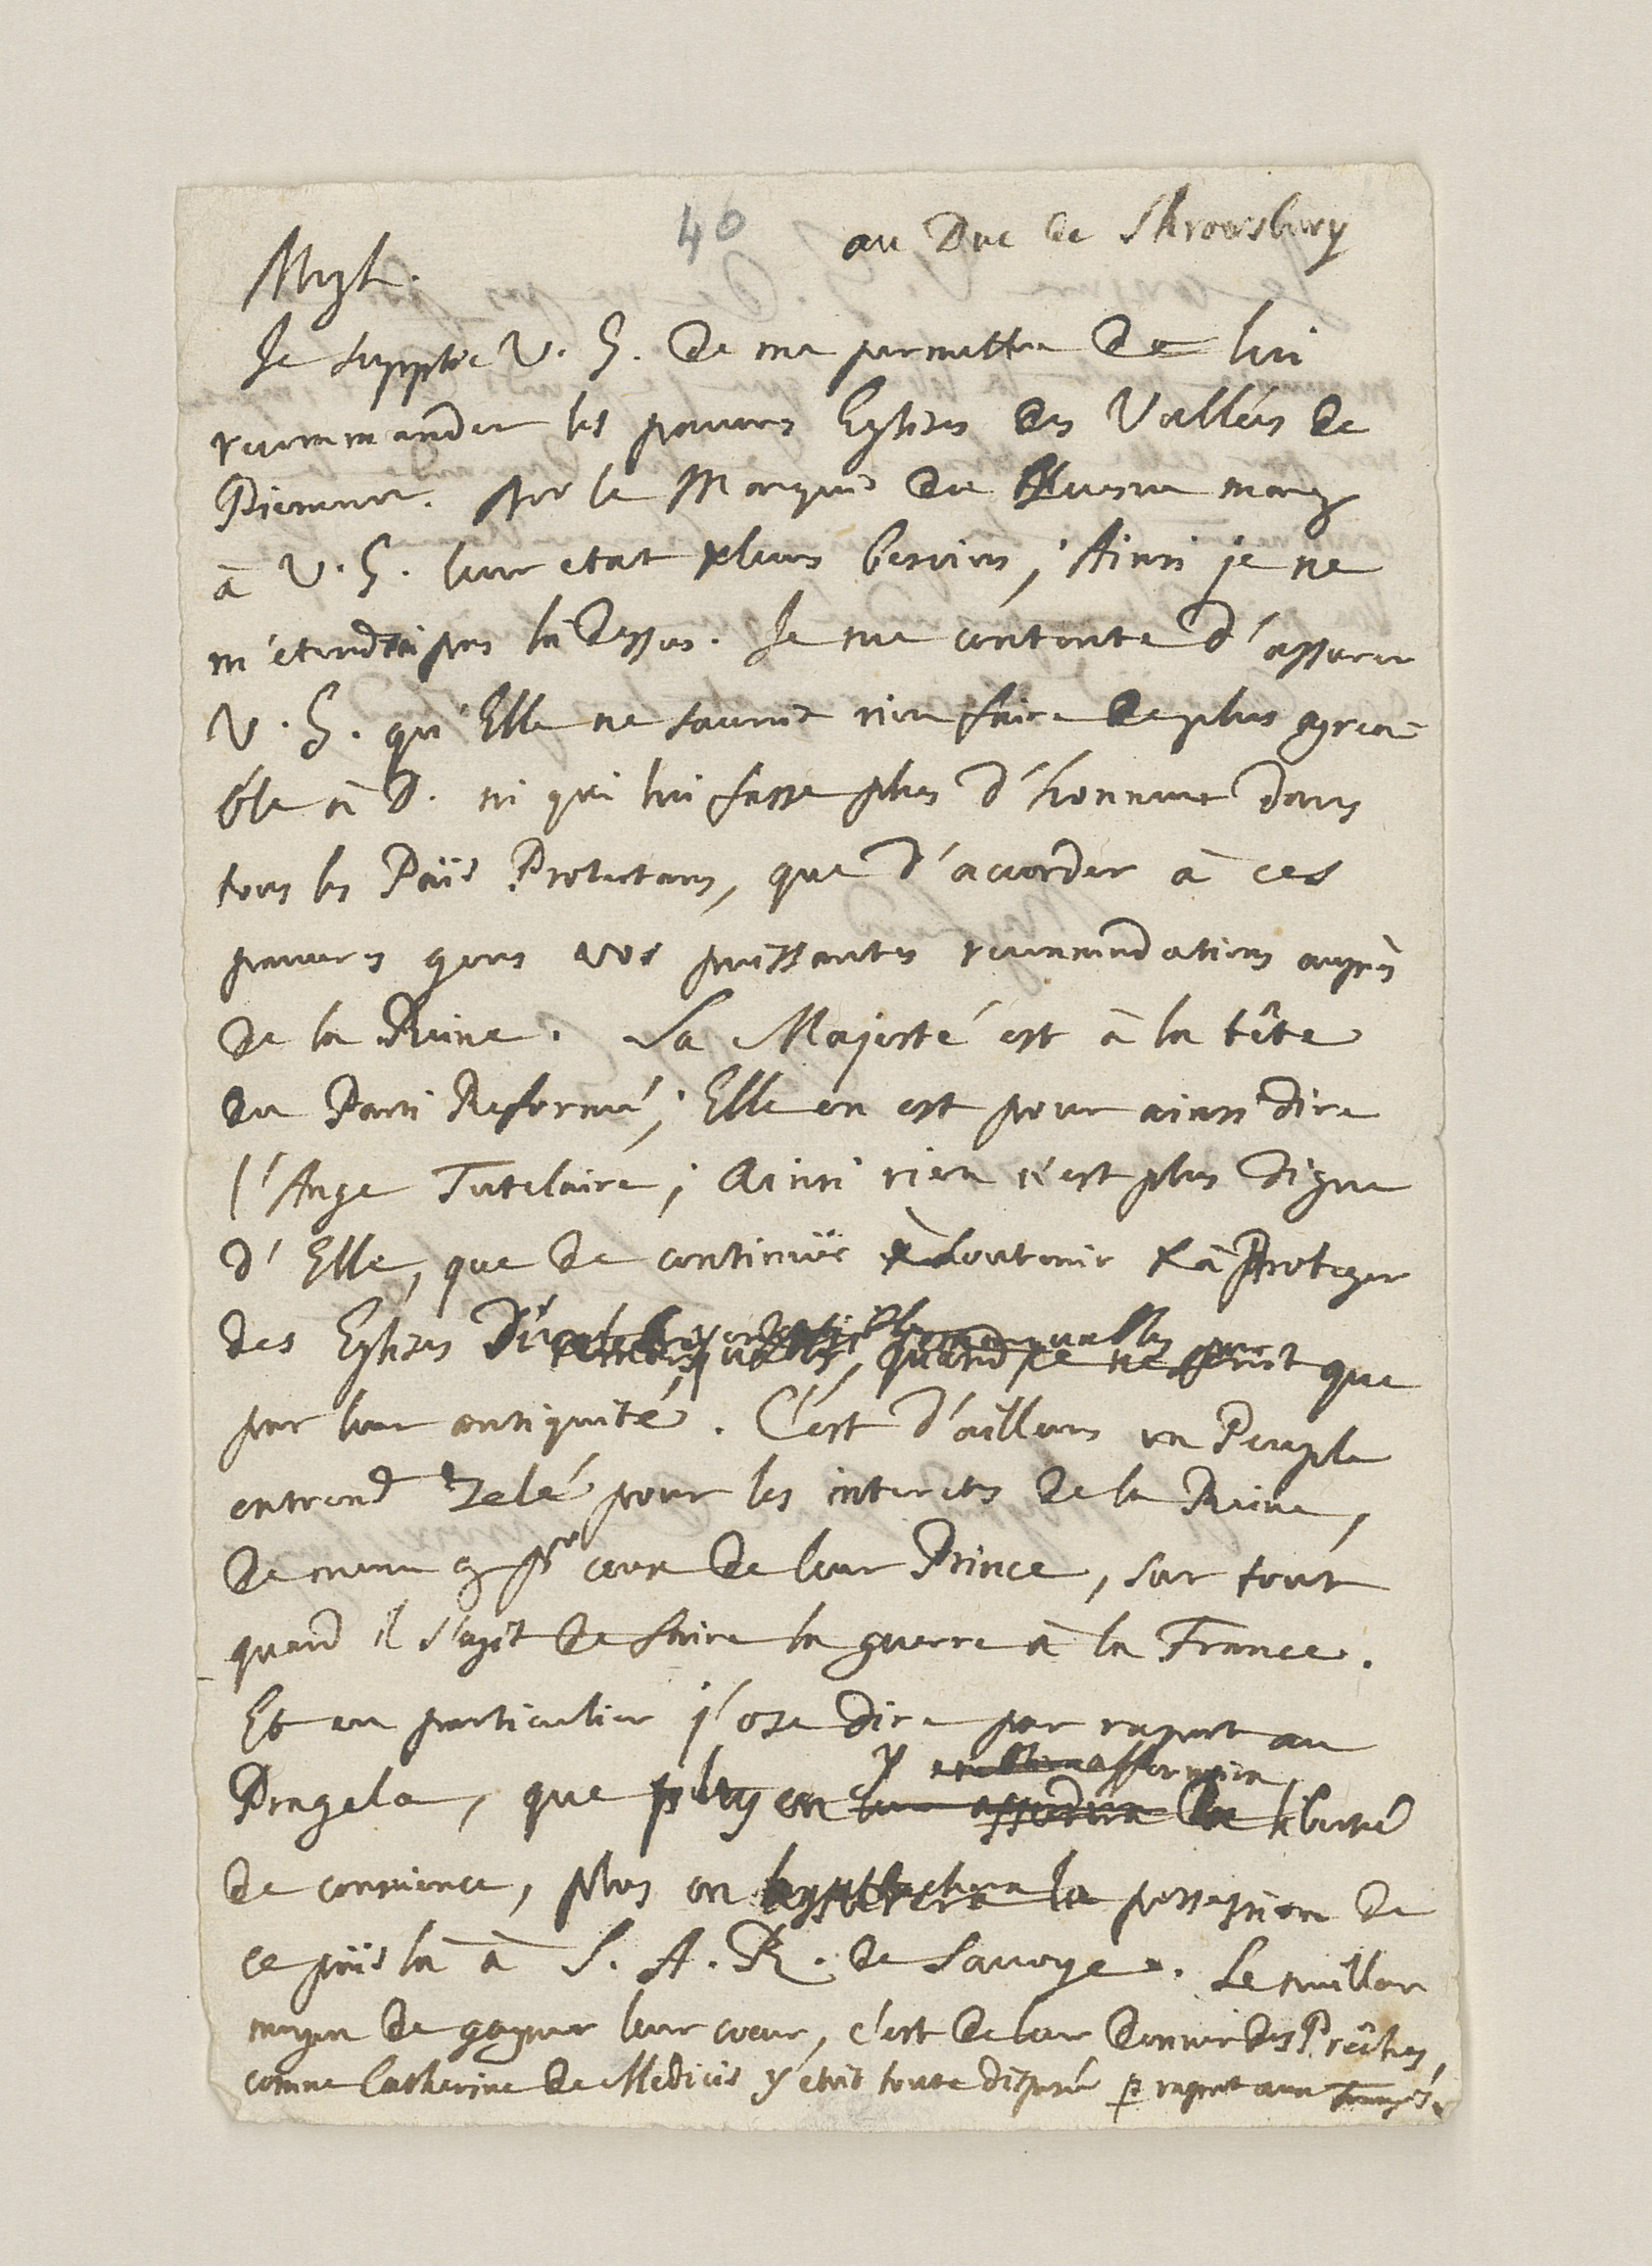 40 au Duc de Shrowsbury
Myl.
Je supplie V. G. de me permettre de lui
recommander les pauvres Eglises des Vallées de
Piemont. Mr le Marquis du Quesne marq
à V. G. leur etat & leurs besoins; Ainsi je ne
m'etendrai pas là dessus. Je me contente d'assurer
V. G. qu'Elle ne sauroit rien faire de plus agrea-
ble à D. ni qui lui fasse plus d'honneur dans
tous les Païs Protestans, que d'acorder à ces
pauvres gens vos puissantes recommandations auprès
de la Reine. Sa Majesté est à la tête
du Parti Reformé; Elle en est pour ainsi dire
l'Ange Tutelaire; Ainsi rien n'est plus digne
d'Elle, que de continuër à soutenir & à Proteger
des Eglises quand ce ne seroit que
par leur antiquité. C'est d'ailleurs un Peuple
zelé pour les interets de la Reine,
de meme q pr ceux de leur Prince, sur tout
quand il s'agit de faire la guerre à la France.
Et en particulier j'ose dire par raport au
y affermira
Pragela, que plus on liberté
de conscience, plus on la possession de
ce païs là à S. A. R. de Savoye. Le meilleur
moyen de gagner leur coeur, c'est de leur donner des Prêches,
comme Catherine de Medicis y etoit toute disposée p raport aux